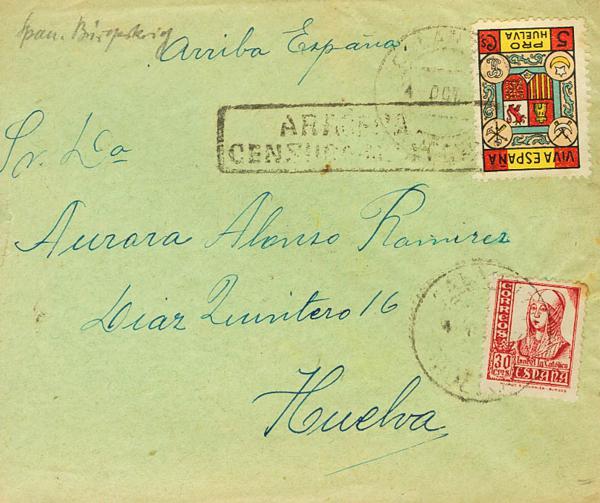 Span. Bürgerkrieg
Arriba España.
5 Cs
PRO
HUELVA
VIVA ESPAÑA
4 OCT
ARACENA
CENSURA
Sr. Dª
Aurora Alonso Ramirez
Diaz Quintero 16
Huelva
CORREOS
30
cts
Isabel la Católica
ESPAÑA